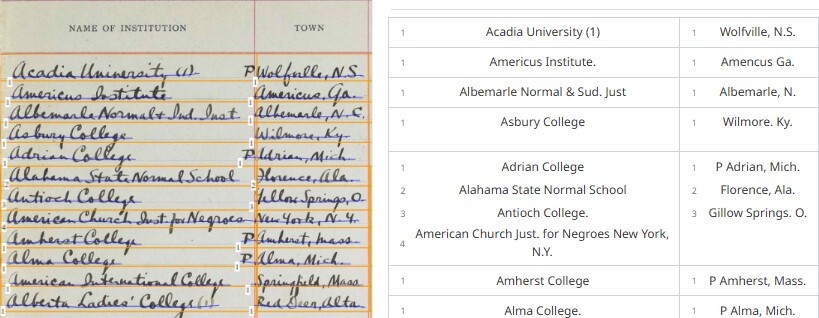 NAME OF INSTITUTION TOWN
Acadia University (1) P Wolfville, N.S.
Americus Institute Americus, Ga.
Albemarle Normal & Ind. Inst. Albemarle, N.C.
Asbury College Wilmore, Ky.
Adrian College P Adrian, Mich.
Alabama State Normal School Florence, Ala.
Antioch College Yellow Springs, O.
American Church Inst for Negroes New York, N.Y.
Amherst College P Amherst, Mass.
Alma College P Alma, Mich.
American International College Springfield, Mass
Alberta Ladies' College (1) Red Deer, Alta.
1 Acadia University (1) 1 Wolfville, N.S.
1 Americus Institute. 1 Amencus Ga.
1 Albemarle Normal & Sud. Just 1 Albemarle, N.
1 Asbury College 1 Wilmore. Ky.
1 Adrian College 1 P Adrian, Mich.
2 Alahama State Normal School 2 Florence, Ala.
3 Antioch College. 3 Gillow Springs. O.
4 American Church Just. for Negroes New York,
N.Y.
1 Amherst College 1 P Amherst, Mass.
1 Alma College. 1 P Alma, Mich.